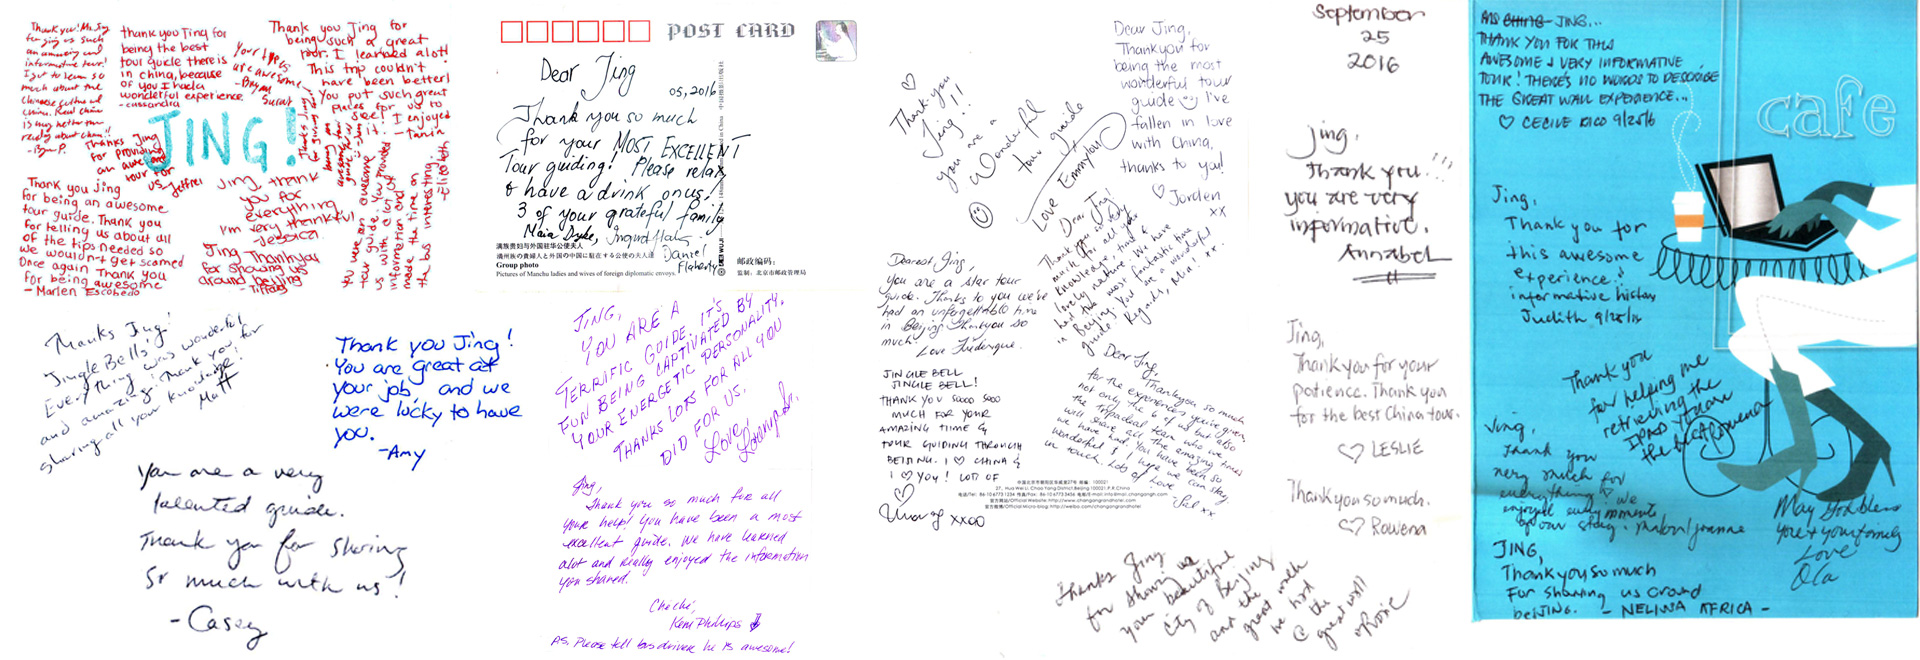 Thank you! Ms. Jing
for giving us such
an amazing and
informative tour!
I got to learn so
much about the
Chinese culture and
China. Real China
is way better than
reading about China!!
- Bryan P.
thank you Jing for
being the best
tour guide there is
in china, because
of you I had a
wonderful experience.
- cassandra
Your tours
are awesome
- Bryan
Thank you Jing for
being such a great
tour. I learned a lot!
This trip couldn't
have been better!
You put such great
places for us to
see!
I enjoyed
it!
- Tania
JING!
Thanks Jing
for providing
an awesome
tour for
us
Jeffrei
Thank you Jing
for being an awesome
tour guide. Thank you
for telling us about all
of the tips needed so
we wouldn't get scamed
Once again Thank you
for being awesome
- Marlen Escobedo
Jing, thank
you for
everything
I'm very thankful
- Jessica
Jing Thankyou
for showing us
around beijing
- Tiffany
You were an awesome
tour guide. You provided
us with a lot of
information and
made the time on
the bus interesting.
- Elizabeth
POST CARD
Dear Jing
05, 2016
Thank you so much
for your MOST EXCELLENT
Tour guiding! Please relax
& have a drink on us!
3 of your grateful family
Maia Dyke, Ingrid
Daniel
Flaherty
满族贵妇与外国驻华公使夫人
満州族の貴婦人と外国の中国に駐在する公使の夫人達
Group photo
Pictures of Manchu ladies and wives of foreign diplomatic envoys
邮政编码:
监制: 北京市邮政管理局
Thanks Jing!
Jingle Bells!
Everything was wonderful
and amazing! Thank you, for
sharing all your knowledge!
Matt
Thank you Jing!
You are great at
your job, and we
were lucky to have
you.
- Amy
You are a very
talented guide.
Thank you for sharing
so much with us!
- Casey
JING,
YOU ARE A
TERRIFIC GUIDE. IT'S
FUN BEING CAPTIVATED BY
YOUR ENERGETIC PERSONALITY.
THANKS LOTS FOR ALL YOU
DID FOR US.
Love,
Jing,
Thank you so much for all
your help! You have been a most
excellent guide. We have learned
alot and really enjoyed the information
you shared.
Che che,
Keni Phillips
AS. Please tell bus driver he is awesome!
Thank you
Jing!!
you are a
wonderful
tour guide
Love Emmylou
Dear Jing,
Thankyou for
being the most
wonderful tour
guide I've
fallen in love
with China,
thanks to you!
Jorden
xx
Dearest Jing,
You are a star tour
guide. Thanks to you we've
had an unforgettable time
in Beijing Thankyou so
much!
Love Frederique.
Dear Jing!
Thank you so very
much for all your
knowledge, time &
lovely nature. We have
had the most fantastic time
in Beijing. You are a wonderful
guide. Regards, Mia! xx
JINGLE BELL
JINGLE BELL!
THANK YOU SOOOO SOOO
MUCH FOR YOUR
AMAZING TIME &
TOUR GUIDING THROUGH
BEIJING. I ♡ CHINA &
I ♡ YOU! LOTS OF
xxoo
Dear Jing,
Thankyou so much
for the experiences you've given
not only the 6 of us but also
the tripadeal team who we
will share all the amazing times
we have had. You have been so
wonderful & I hope we can stay
in touch. Lots of Love
Sal xx
中国北京市朝阳区华威里27号 邮编: 100021
27, Hua Wei Li, Chao Yang District Beijing 100021 P.R.China
Thanks Jing
for showing us
your beautiful
city of Beijing
and the
great wall
he hot
@ the
great wall!
Rosie
September
25
2016
Jing,
Thank you!!!
you are very
informative.
Annabel
Jing,
Thank you for your
patience. Thank you
for the best China tour.
♡ LESLIE
Thank you so much.
♡ Rowena
MS CHING JING...
THANK YOU FOR THIS
AWESOME & VERY INFORMATIVE
TOUR! THERE'S NO WORDS TO DESCRIBE
THE GREAT WALL EXPERIENCE...
♡ CECILE RICO 9/25/16
cafe
Jing,
Thank you for
this awesome
experience!!
informative history
Judith 9/25/16
Thank you
for helping me
retrieving the
IPAD
the best
Jing,
Thank you
very much for
everything! We
enjoyed every moment
of our stay.
May God bless
you & your family
Love
Ola
JING,
Thank you so much
For showing us around
beiJING.
- NELIWA AFRICA -